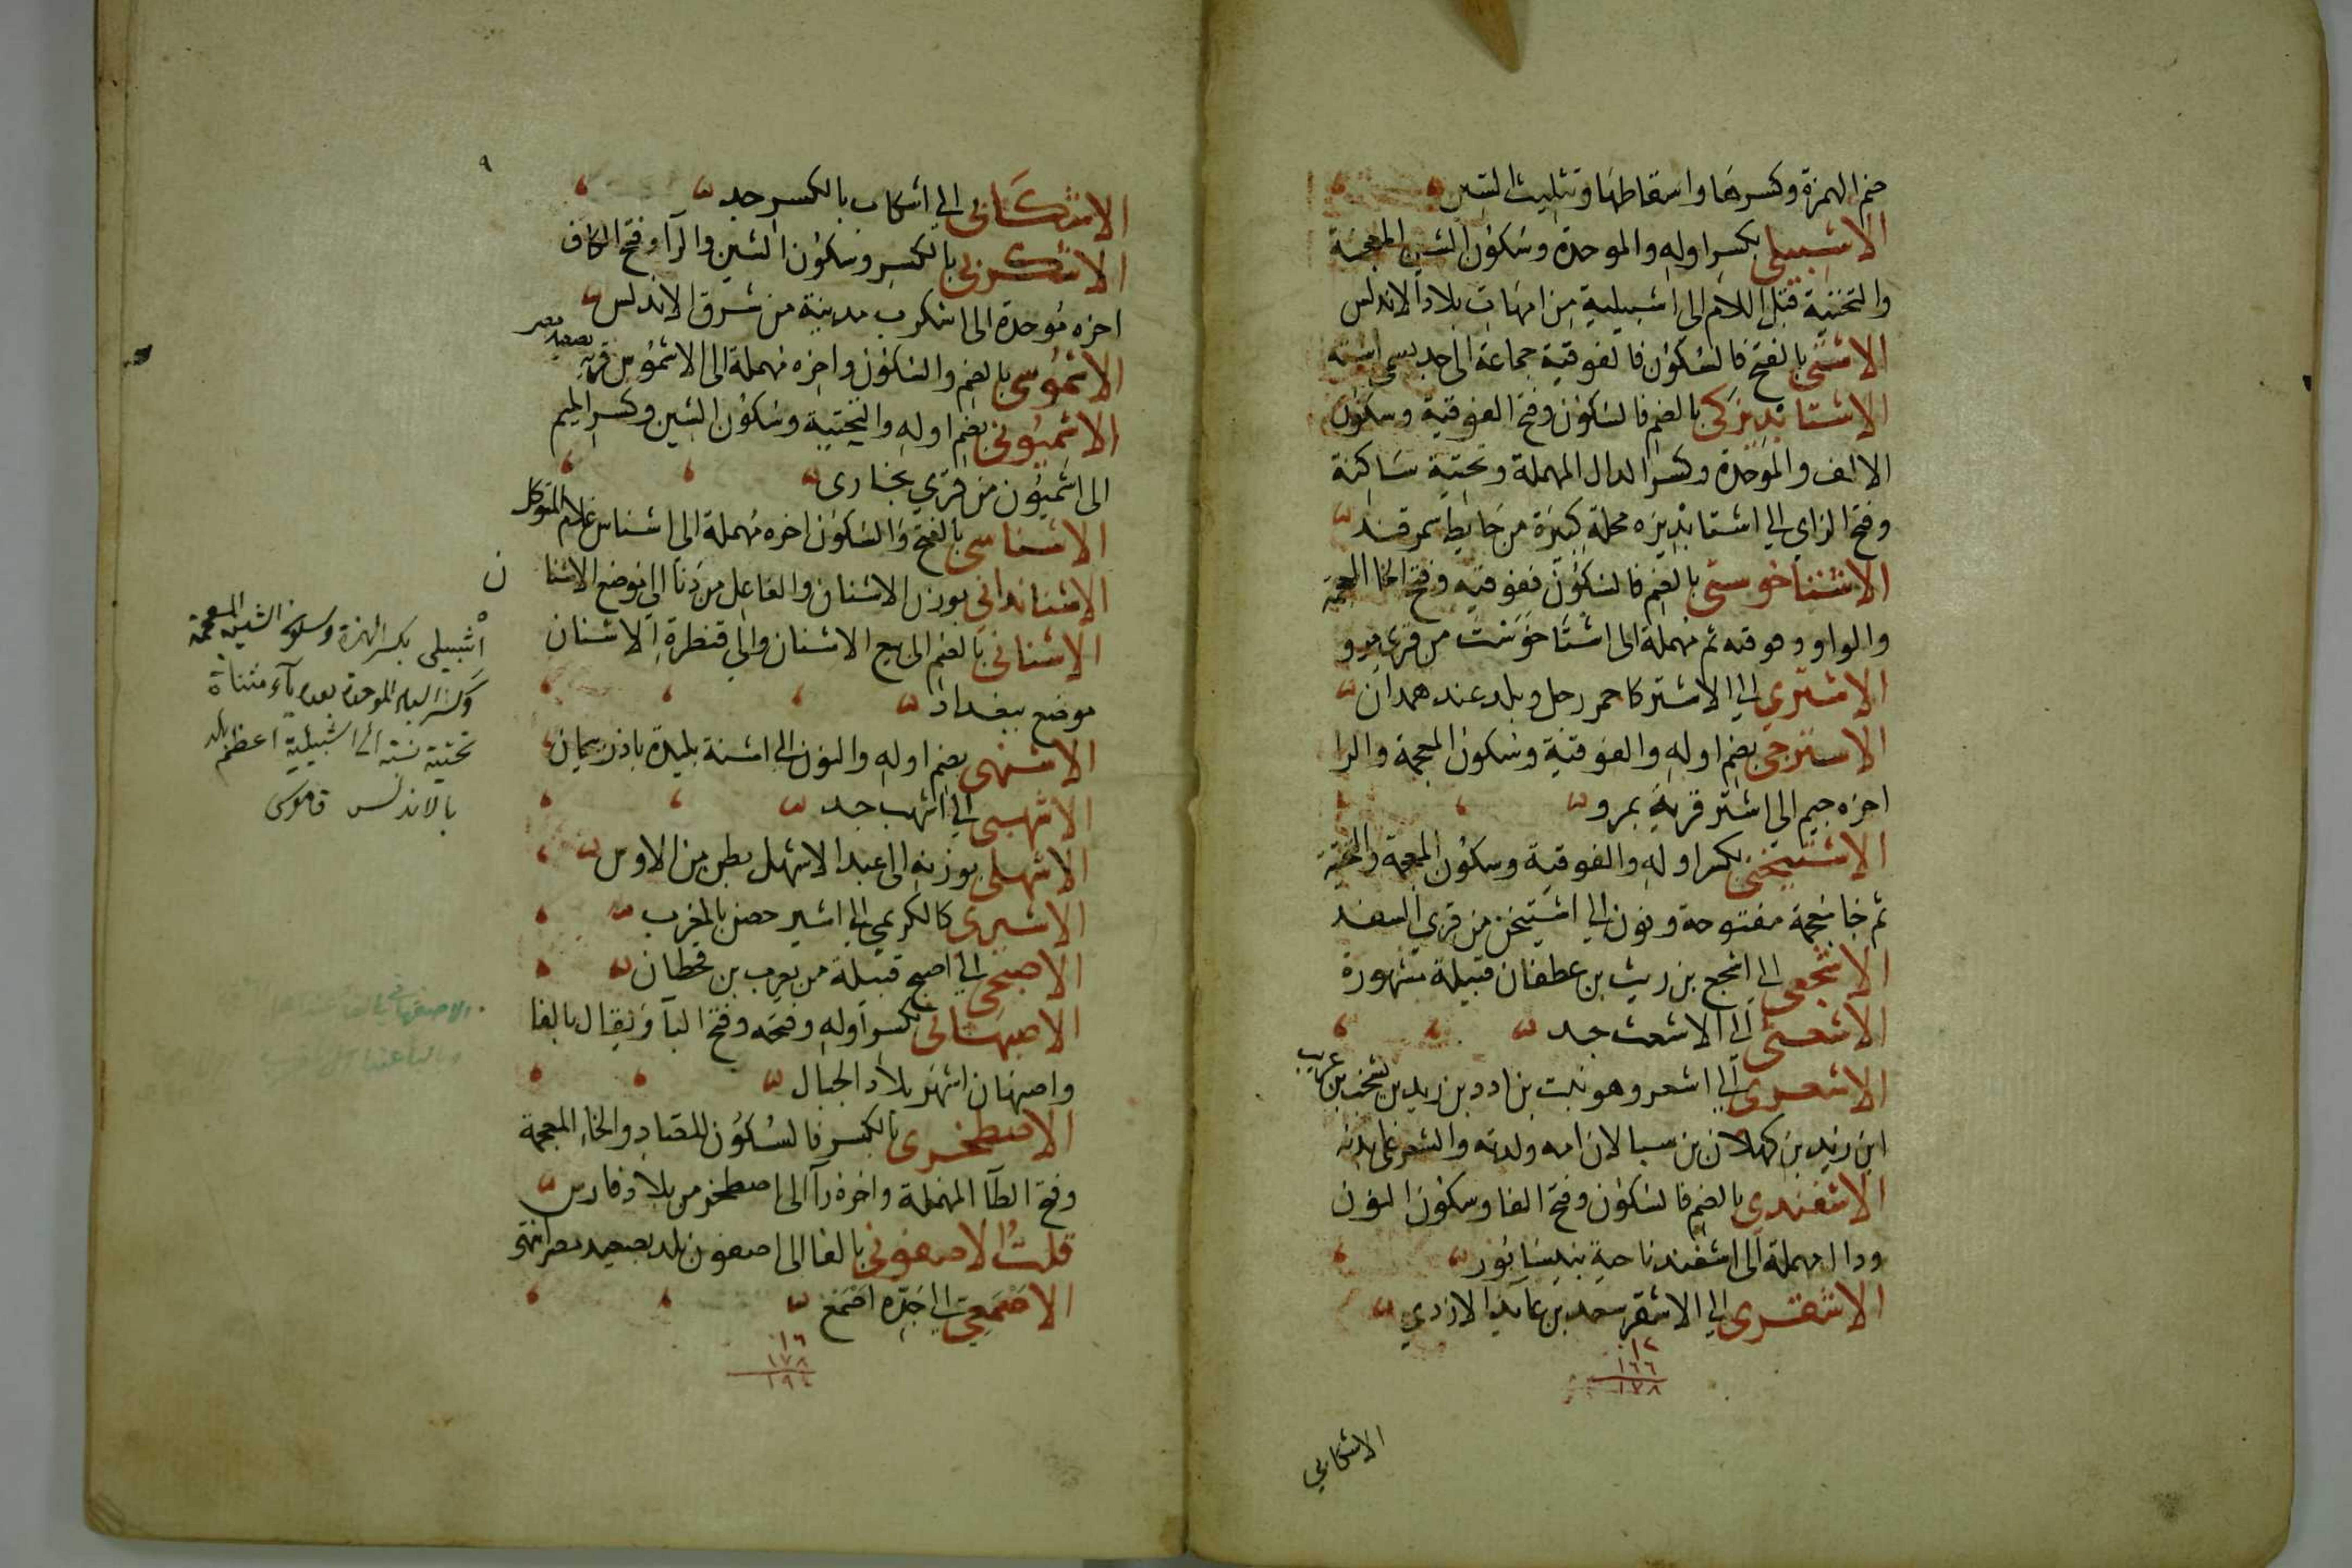 ضم الهمزة وكسرها واسقاطها وتثليث السين
الاشبيلي بكسر اوله والموحدة وسكون الشين المعجمة
والتحتية قبل اللام الى اشبيلية من امهات بلاد الاندلس
الاشتي بالفتح فالسكون فالفوقية جماعة الى جد يسمى اشته
الاشتابديزكي بالضم فالسكون وفتح الفوقية وسكون
الالف والموحدة وكسر الدال المهملة وتحتية ساكنة
وفتح الزاي الي اشتابديزه محلة كبيرة من حايط سمرقند
الاشتاخوستي بالضم فالسكون ففوقية وفتح الخا المعجمة
والواو وفوقه ثم مهملة الى اشتاخوست من قرى مرو
الاشتري الي الاشتر كاحمر رجل وبلد عند همدان
الاشترجي بضم اوله والفوقية وسكون المعجمة والرا
اخره جيم الى اشتر قرية بمرو
الاشتيخني بكسر اوله والفوقية وسكون المعجمة والتحتية
ثم خا معجمة مفتوحة ونون الي اشتيخن من قري السغد
الاشجعي الي اشجع بن ريث بن غطفان قبيلة مشهورة
الاشعثي الي الاشعث جد
الاشعري الي اشعر وهو نبت بن ادد بن زيد بن يشجب بن عريب
ابن زيد بن كهلان بن سبا لان امه ولدته والشعر على بدنه
الاشفندي بالضم فالسكون وفتح الفا وسكون النون
ودال مهملة الى اشفند ناحية بنيسابور
الاشقري الي الاشقر سعد بن عايذ الازدي
١٢
١٦٦
١٧٨
الاشكابي
٩
الاشكابي الي اشكاب بالكسر جد
الاشكربي بالكسر وسكون الشين والرا وفتح الكاف
اخره موحدة الى اشكرب مدينة من شرق الاندلس
الاشموسي بالضم والسكون واخره مهملة الى الاشموس قرية بصعيد مصر
الاشميوني بضم اوله والتحتية وسكون الشين وكسر الميم
الى اشميون من قري بخارى
الاشناسي بالفتح والسكون اخره مهملة الى اشناس غلام المتوكل
الاشنانداني بوزن الاشنان والفاعل من دنا الي موضع الاشنا
ن
الاشناني بالضم الى بيع الاشنان والي قنطرة الاشنان
موضع ببغداد
الاشنهي بضم اوله والنون الي اشنة بليدة باذربيجان
الاشهبي الي اشهب جد
الاشهلي بوزنه الى عبد الاشهل بطن من الاوس
الاشيري كالكريمي الي اشير حصن بالمغرب
الاصبحي الي اصبح قبيلة من يعرب بن قحطان
الاصبهاني بكسر اوله وفتحه وفتح البا ويقال بالفا
واصبهان اشهر بلاد الجبال
الاصطخري بالكسر فالسكون للصاد والخاء المعجمة
وفتح الطا المهملة واخره را الى اصطخر من بلاد فارس
قلت الاصفوني بالفا الى اصفون بلد بصعيد مصر انتهى
الاصمعي الي جده اصمع
١٦
١٧٨
١٩٤
اشبيلي بكسر الهمزة وسكون الشين المعجمة
وكسر الباء الموحدة بعده ياء مثناة
تحتية نسبة الى اشبيلية اعظم بلد
بالاندلس قاموس
الاصفهاني بالفا